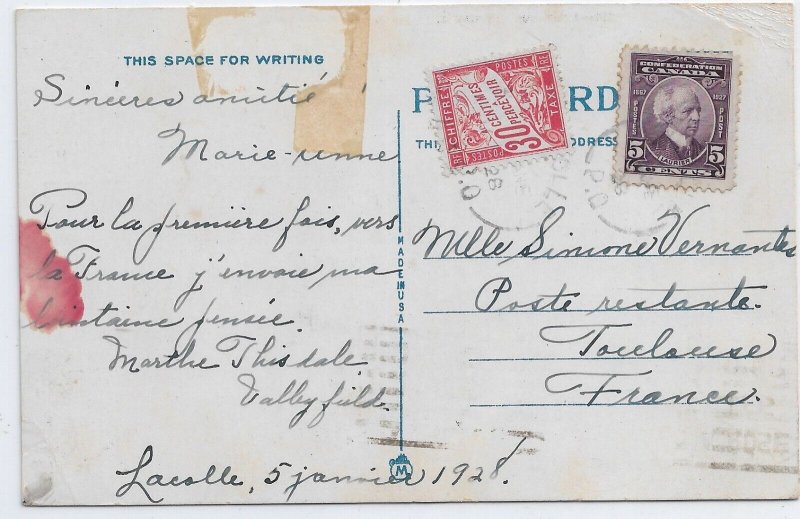 THIS SPACE FOR WRITING
Sincères amitié
Marie-
Pour la première fois, vers
la France j'envoie ma
lointaine pensée.
Marthe Thisdale
Valleyfield.
Lacolle, 5 janvier 1928.
MADE IN USA
M
POSTES RF
CHIFFRE TAXE
30 CENTIMES
A PERCEVOIR
RF POSTES
28
P.Q
CONFEDERATION
CANADA
1867 1927
POSTES POST
LAURIER
5 CENTS 5
P.Q
RD
ADDRESS
Mlle Simone Vernantes
Poste restante.
Toulouse
France.